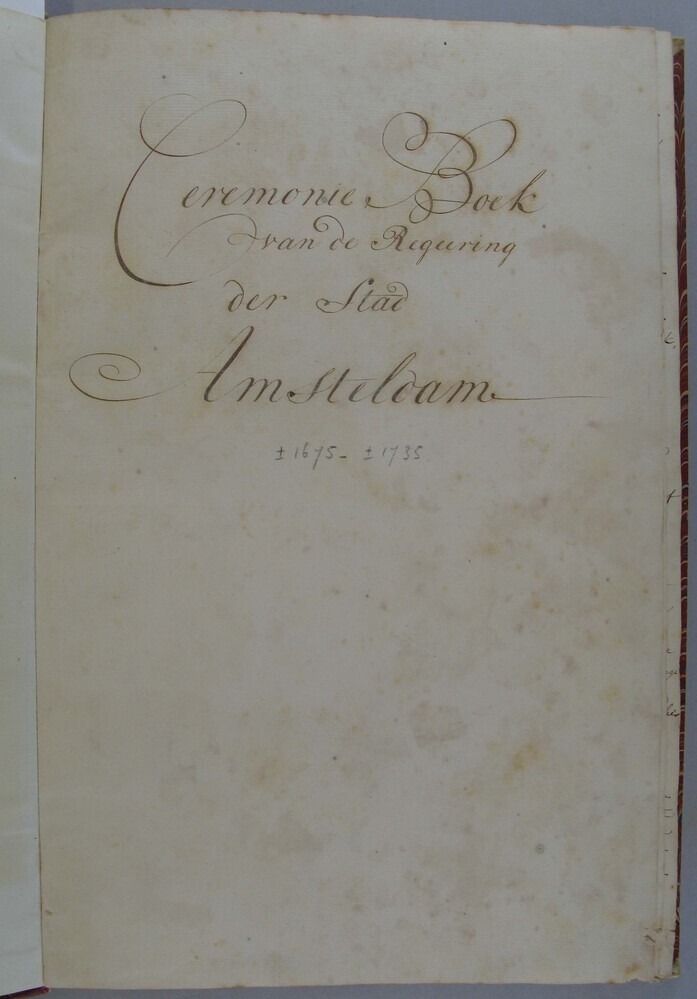 Ceremonie Boek
van de Regeering
der Stad
Amsteldam
± 1675 - ± 1735